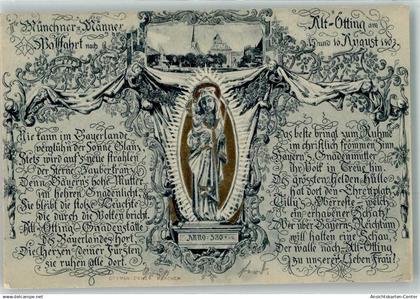 Münchner-Männer
Wallfahrt nach
Alt-Ötting am
15. und 16. August 190
Nie kann im Bayerlande
verglühn der Sonne Glanz,
Stets wird auf's neue strahlen
der Sterne Zauberkranz
Denn Bayerns hohe Mutter
mit hehrem Gnadenlicht
Sie bleibt die stolze Leuchte
die durch die Wolken bricht.
Alt-Ötting-Gnadenstätte
des Bayerlandes Hort,
Die Herzen deiner Fürsten
sie ruhen alle dort.
Das beste bringt zum Ruhme
im christlich frommen Sinn
Bayern's Gnadenmutter
Ihr Volk in Treue hin
Des grössten Helden Hülle
hat dort den Ehrenplatz
Tilly's Überreste welch
ein erhabener Schatz!
Der über Bayerns Regium
will halten eine Schau,
Der walle nach Alt-Ötting
zu unserer Lieben Frau!
ANNO 520